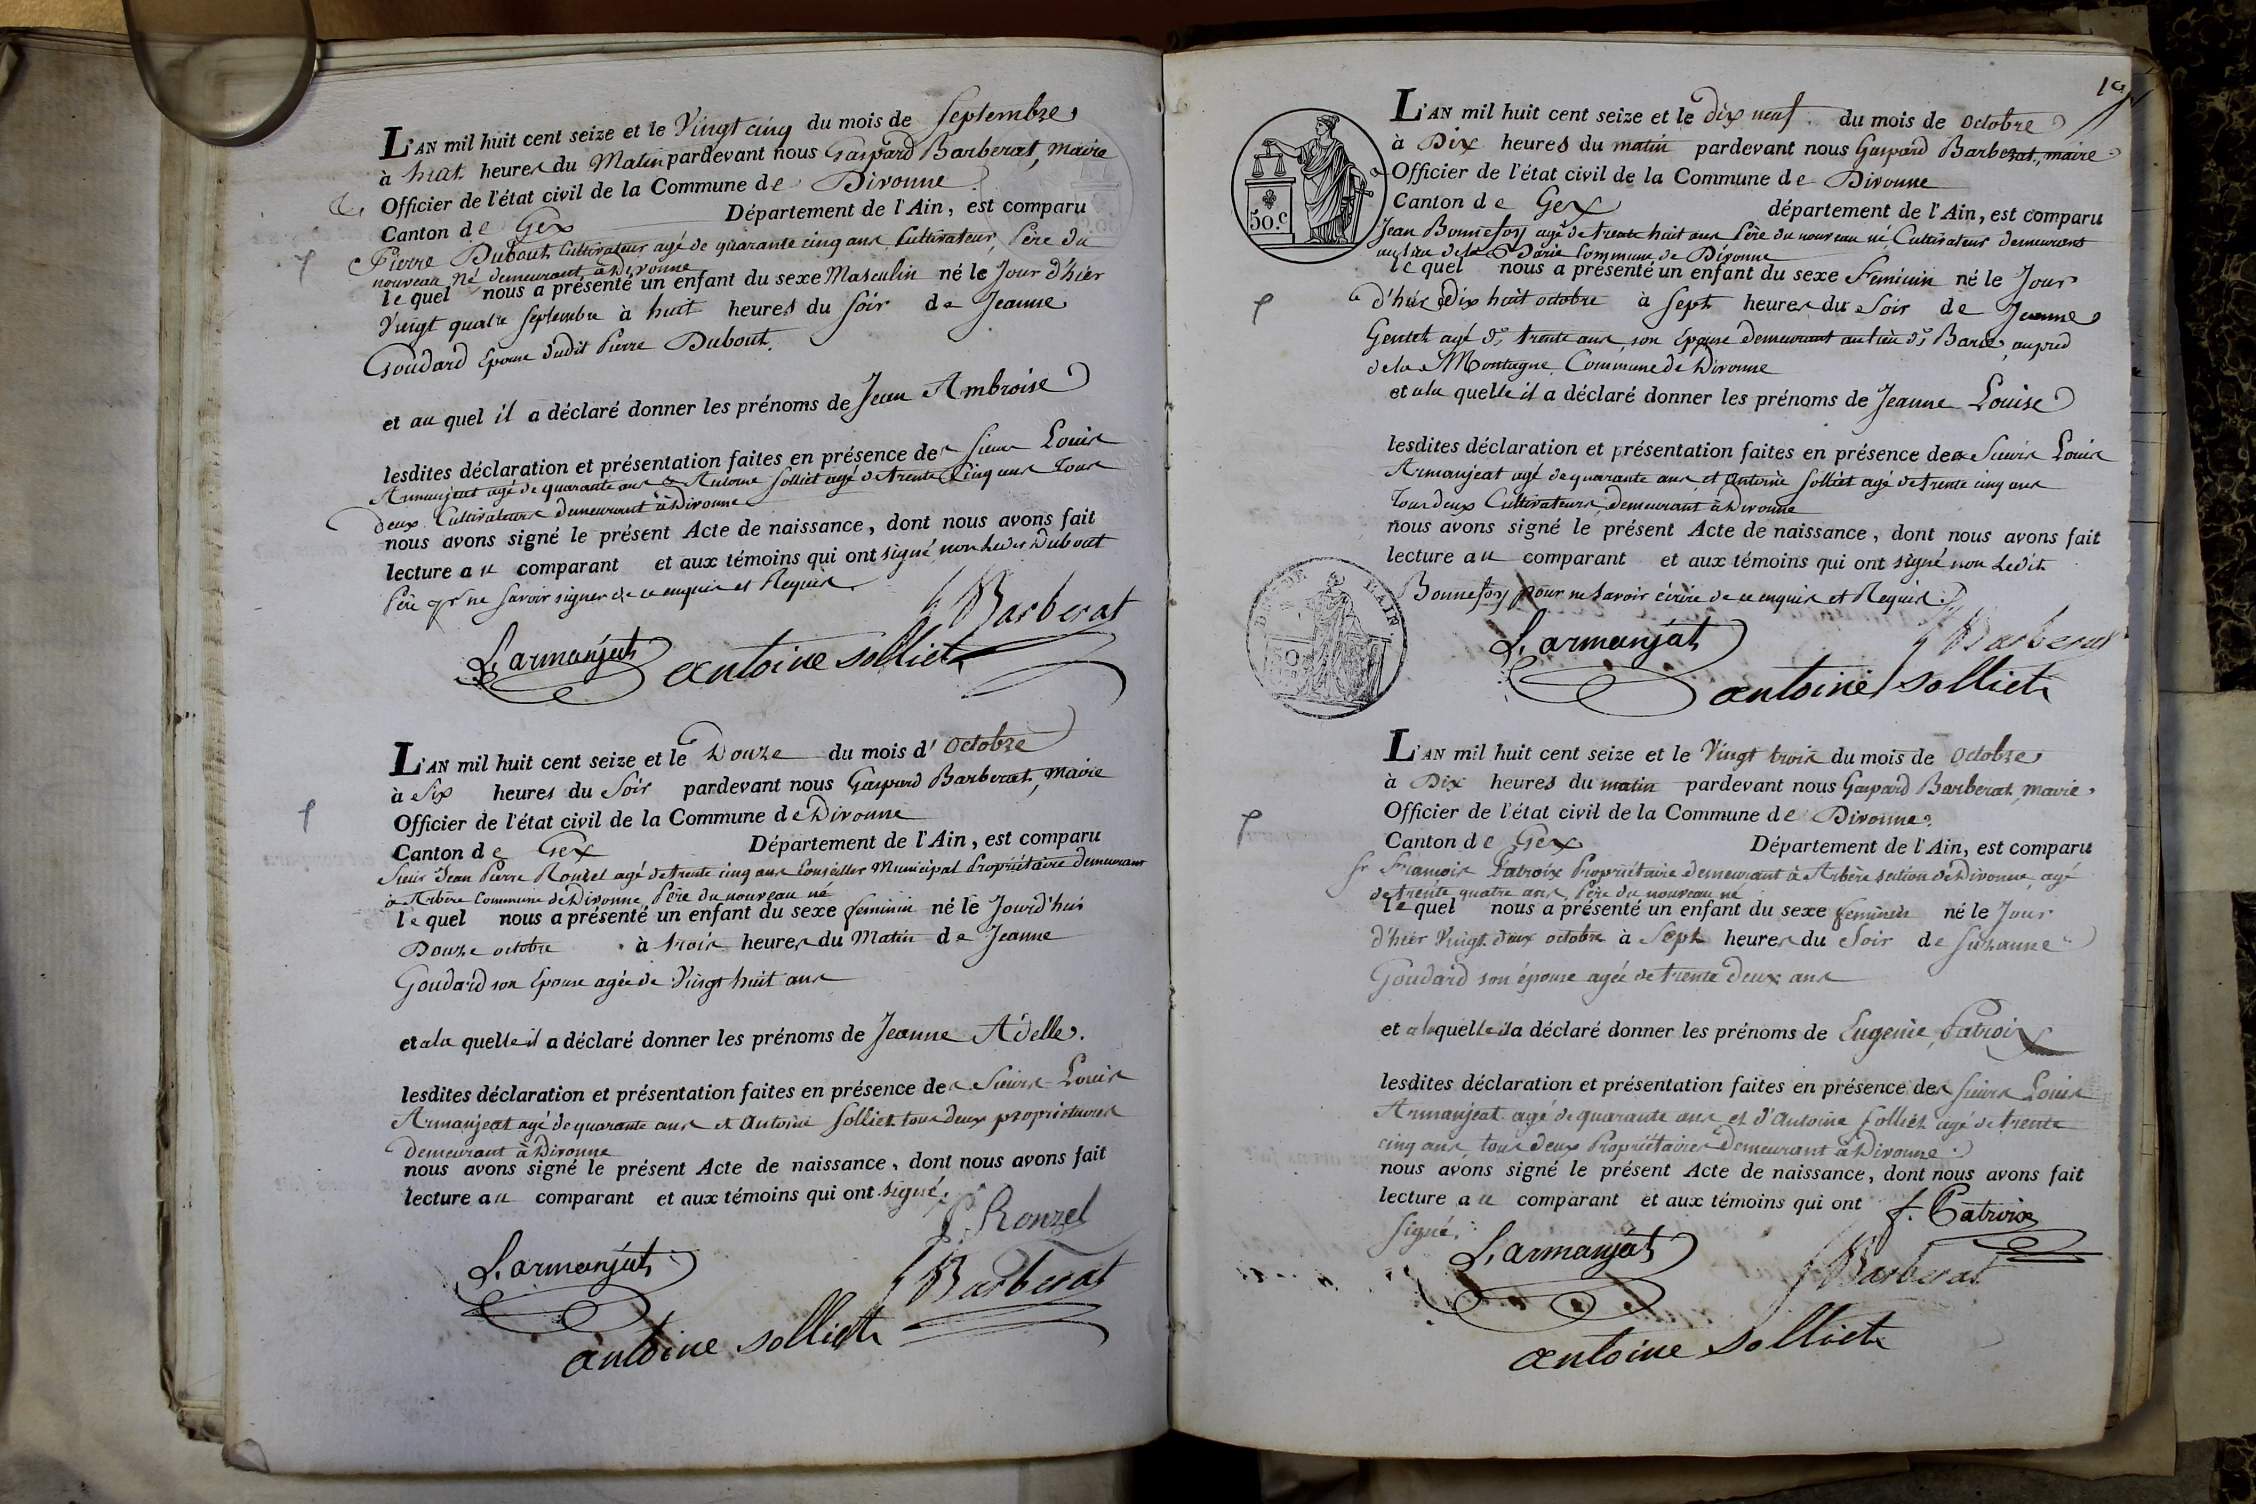 L'AN mil huit cent seize et le Vingt cinq du mois de Septembre
à huit heures du Matin pardevant nous Gaspard Barberat, maire
Officier de l'état civil de la Commune de Divonne
Canton de Gex Département de l'Ain, est comparu
Pierre Dubout Cultivateur agé de quarante cinq ans Cultivateur, Père du
nouveau Né demeurant à Divonne
lequel nous a présenté un enfant du sexe Masculin né le Jour d'hier
Vingt quatre Septembre à huit heures du soir de Jeanne
Goudard Epouse dudit Pierre Dubout.
et au quel il a déclaré donner les prénoms de Jean Ambroise
lesdites déclaration et présentation faites en présence des Sieurs Louis
Armanjeat agé de quarante ans & Antoine Solliet agé de trente Cinq ans Tous
deux Cultivateurs demeurant à Divonne
nous avons signé le présent Acte de naissance, dont nous avons fait
lecture au comparant et aux témoins qui ont signé non Ledit Dubout
Père pr ne Savoir signer de ce enquis et Requis
Barberat
L. armanjat antoine solliet
L'AN mil huit cent seize et le Douze du mois d'Octobre
à Six heures du Soir pardevant nous Gaspard Barberat, Maire
Officier de l'état civil de la Commune de Divonne
Canton de Gex Département de l'Ain, est comparu
Sieur Jean Pierre Rouzel agé de trente cinq ans Conseiller Municipal Propriétaire demeurant
à Arbère Commune de Divonne, Père du nouveau né
lequel nous a présenté un enfant du sexe feminin né le Jourd'hui
Douze octobre à trois heures du Matin de Jeanne
Goudard son Epouse agée de Vingt huit ans
et a la quelle il a déclaré donner les prénoms de Jeanne Adelle.
lesdites déclaration et présentation faites en présence des Sieurs Louis
Armanjeat agé de quarante ans et Antoine Solliet tous deux propriétaires
demeurant à Divonne
nous avons signé le présent Acte de naissance, dont nous avons fait
lecture au comparant et aux témoins qui ont signé.
P. Rouzel
L. armanjat
Barberat
antoine solliet
19
L'AN mil huit cent seize et le dix neuf du mois de Octobre
à Dix heures du matin pardevant nous Gaspard Barberat, maire
Officier de l'état civil de la Commune de Divonne
Canton de Gex département de l'Ain, est comparu
50.c
Jean Bonnefoy agé de trente huit ans Père du nouveau né Cultivateur demeurant
au lieu de la Commune de Divonne
lequel nous a présenté un enfant du sexe Feminin né le Jour
d'hier Dix huit octobre à Sept heures du Soir de Jeanne
Gentet agé de trente ans son Epouse demeurant au lieu de auprès
de la Montagne Commune de Divonne
et a la quelle il a déclaré donner les prénoms de Jeanne Louise
lesdites déclaration et présentation faites en présence des Sieurs Louis
Armanjeat agé de quarante ans et Antoine Solliet agé de trente cinq ans
Tous deux Cultivateurs demeurant à Divonne
nous avons signé le présent Acte de naissance, dont nous avons fait
lecture au comparant et aux témoins qui ont signé non Ledit
Bonnefoy pour ne Savoir écrire de ce enquis et Requis.
L. armanjat Barberat
antoine solliet
L'AN mil huit cent seize et le Vingt trois du mois de Octobre
à Dix heures du matin pardevant nous Gaspard Barberat, maire
Officier de l'état civil de la Commune de Divonne
Canton de Gex Département de l'Ain, est comparu
Sr François Patroix Propriétaire demeurant à Arbère section de Divonne, agé
de trente quatre ans, Père du nouveau né
lequel nous a présenté un enfant du sexe feminin né le Jour
d'hier Vingt deux octobre à Sept heures du Soir de Suzanne
Goudard son épouse agée de trente deux ans
et a laquelle il a déclaré donner les prénoms de Eugenie Patroix
lesdites déclaration et présentation faites en présence des Sieurs Louis
Armanjeat agé de quarante ans, et d'Antoine Solliet agé de trente
cinq ans, tous deux Propriétaires demeurant à Divonne.
nous avons signé le présent Acte de naissance, dont nous avons fait
lecture au comparant et aux témoins qui ont
signé. f. Patroix
L. armanjat
Barberat
antoine solliet